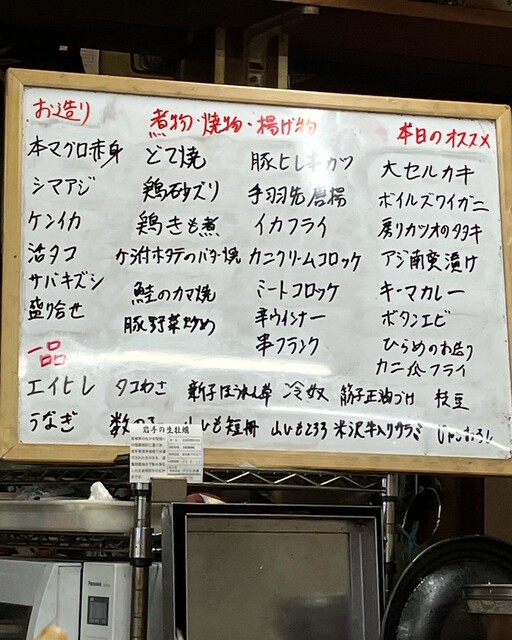 お造り
本マグロ赤身
シマアジ
ケンイカ
活タコ
サバキズシ
盛り合せ
煮物・焼物・揚げ物
どて焼
鶏砂ズリ
鶏きも煮
ケ付ホタテのバター焼
鮭のカマ焼
豚野菜炒め
豚ヒレ串カツ
手羽先唐揚
イカフライ
カニクリームコロッケ
ミートコロッケ
辛ウインナー
串フランク
本日のオススメ
大セルカキ
ボイルズワイガニ
戻りカツオのタタキ
アジ南蛮漬け
キーマカレー
ボタンエビ
ひらめのお造り
カニ爪フライ
一品
エイヒレ タコわさ ほうれん草 冷奴 筋子正油づけ 枝豆
うなぎ 数の子 山いも短冊 山いもとろろ 米沢牛入りサラミ じゃこおろし
岩手の生牡蠣
Panasonic